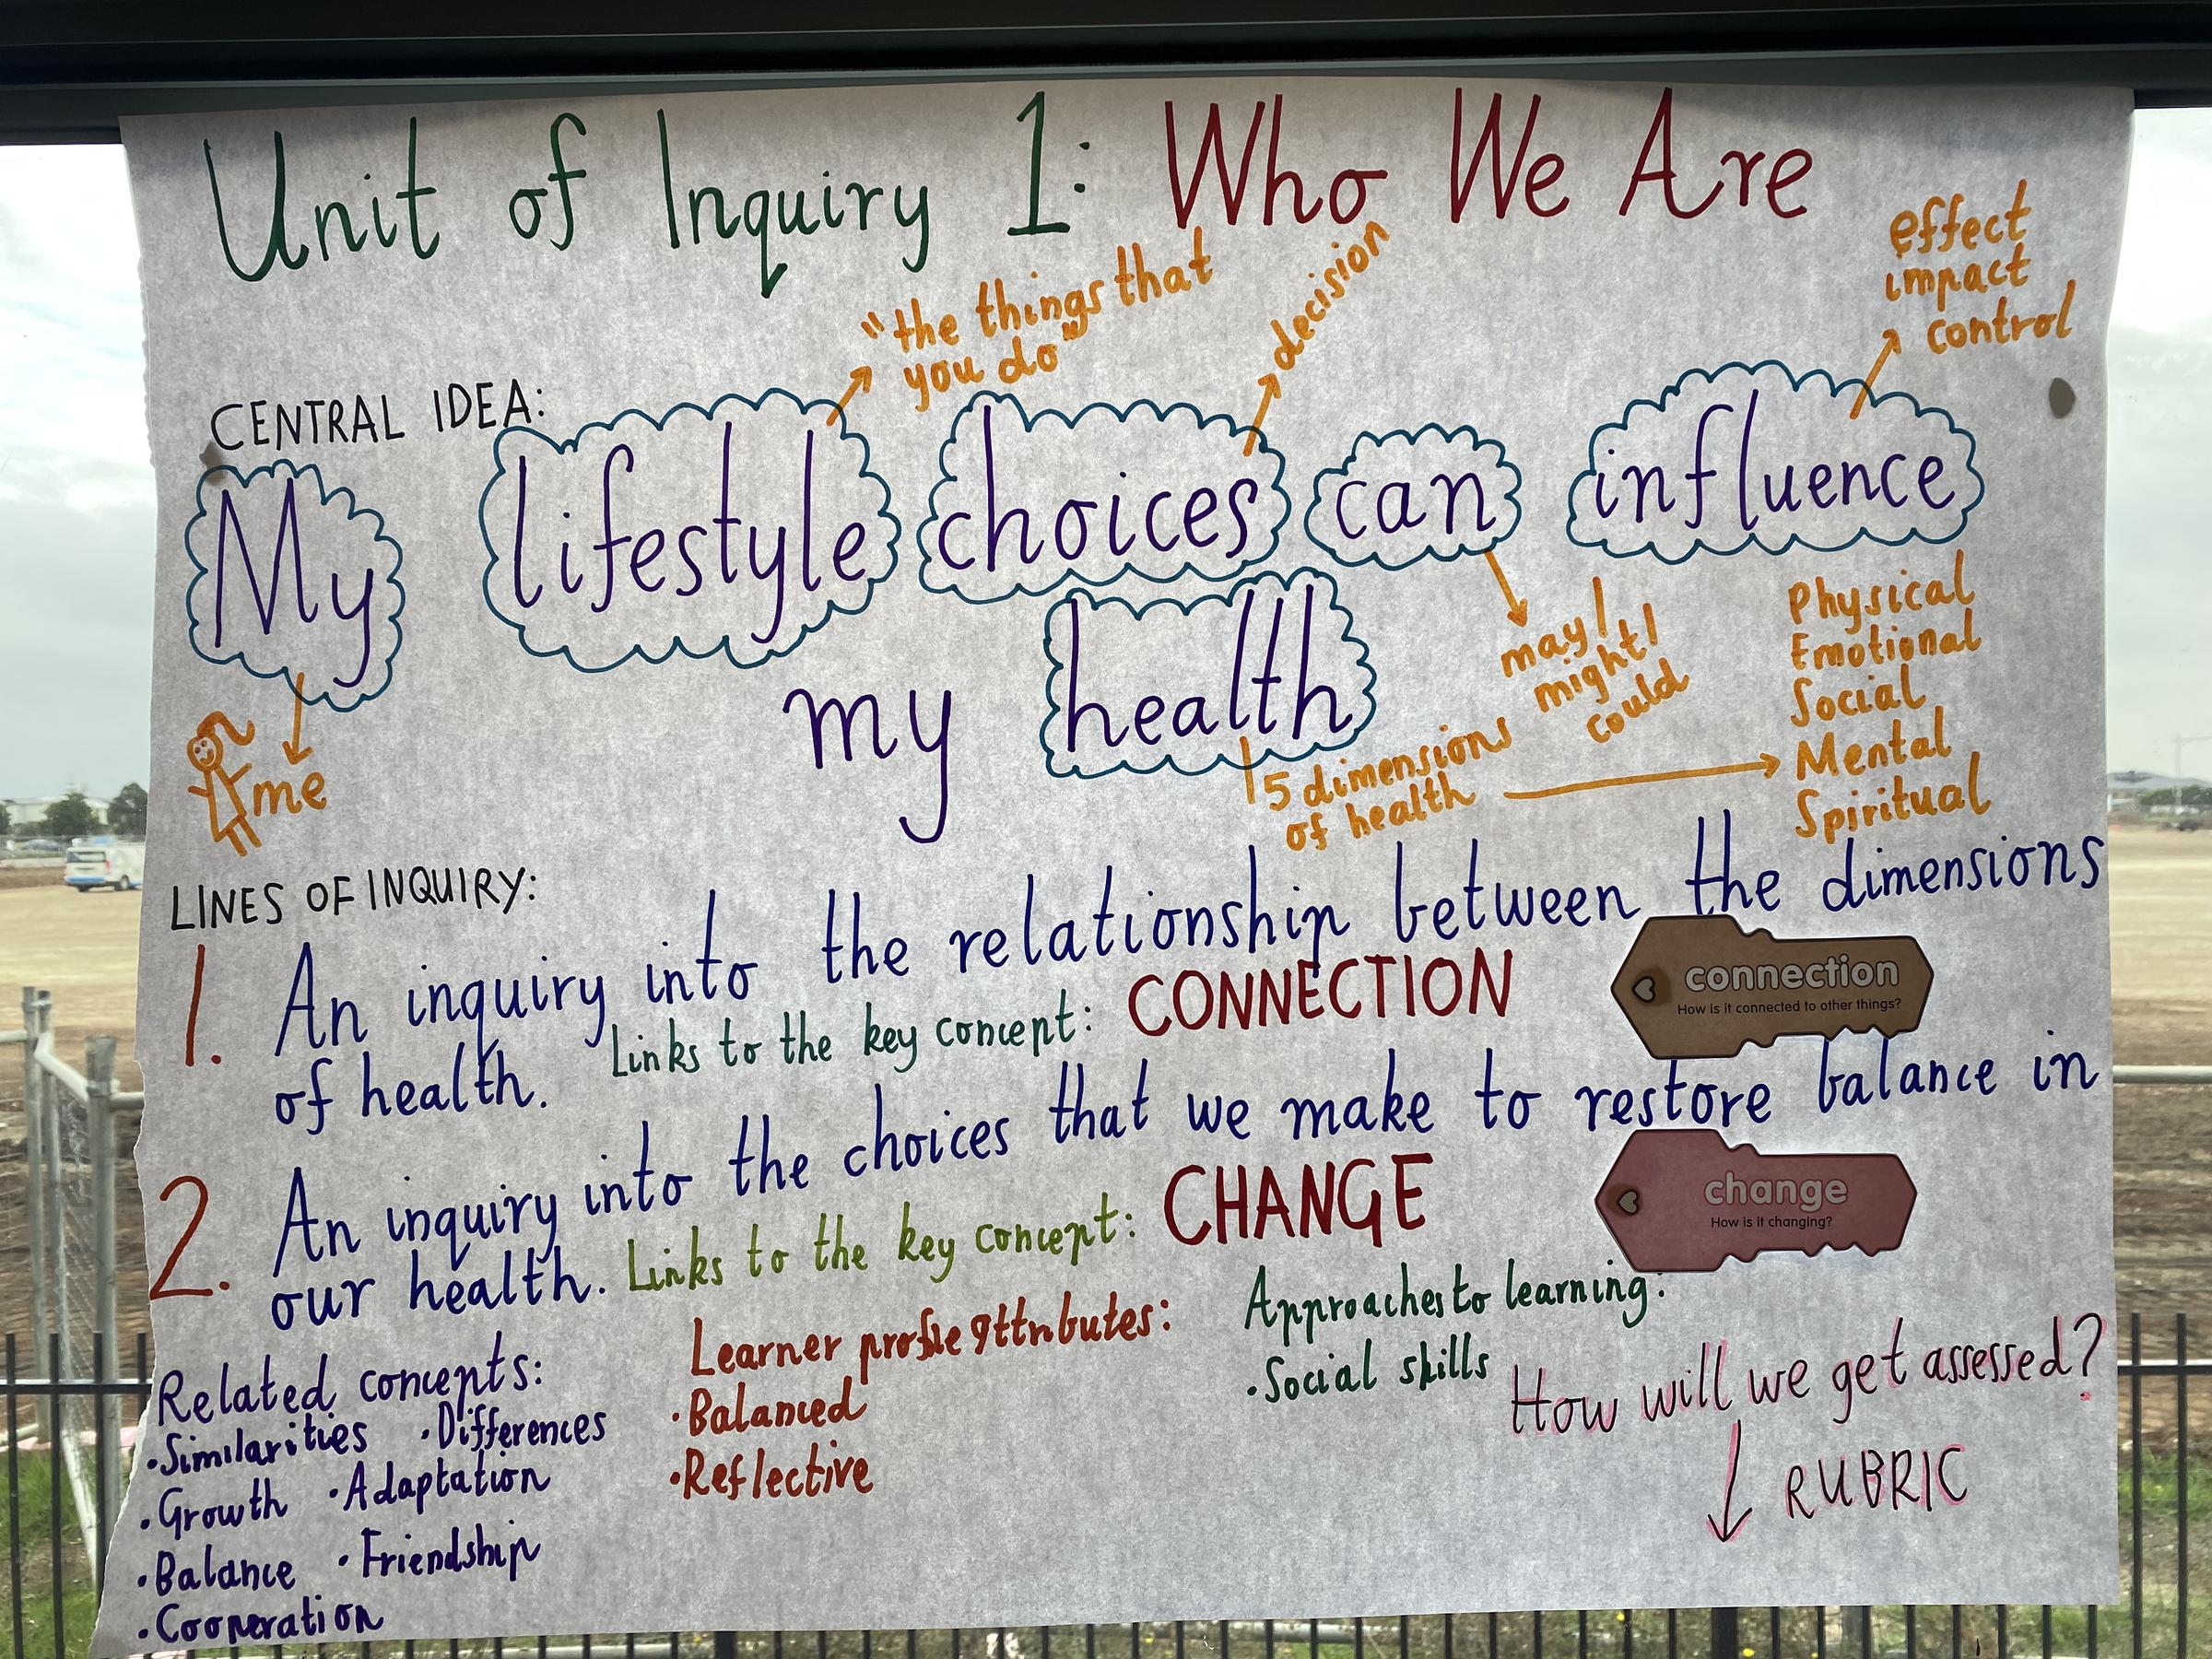 Unit of Inquiry 1: Who We Are
"the things that
you do"
decision
effect
impact
control
CENTRAL IDEA:
My lifestyle choices can influence
my health
me
may/
might/
could
5 dimensions
of health
Physical
Emotional
Social
Mental
Spiritual
LINES OF INQUIRY:
1. An inquiry into the relationship between the dimensions
of health.
Links to the key concept: CONNECTION
connection
How is it connected to other things?
2. An inquiry into the choices that we make to restore balance in
our health.
Links to the key concept: CHANGE
change
How is it changing?
Related concepts:
·Similarities ·Differences
·Growth ·Adaptation
·Balance ·Friendship
·Cooperation
Learner profile attributes:
·Balanced
·Reflective
Approaches to learning:
·Social skills
How will we get assessed?
RUBRIC